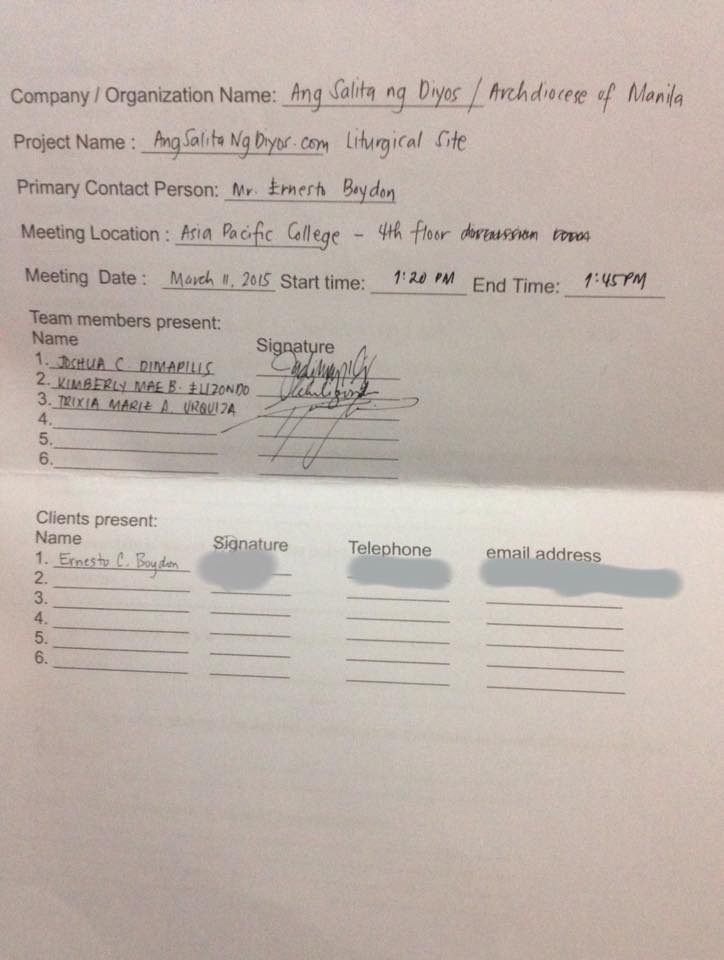 Company / Organization Name: Ang Salita ng Diyos / Archdiocese of Manila
Project Name : AngSalitaNgDiyos.com Liturgical Site
Primary Contact Person: Mr. Ernesto Boydon
Meeting Location : Asia Pacific College - 4th floor
Meeting Date : March 11, 2015 Start time: 1:20 PM End Time: 1:45 PM
Team members present:
Name Signature
1. JOSHUA C. DIMAPILIS
2. KIMBERLY MAE B. ELIZONDO
3. TRIXIA MARIE A. URQUIZA
4.
5.
6.
Clients present:
Name Signature Telephone email address
1. Ernesto C. Boydon
2.
3.
4.
5.
6.